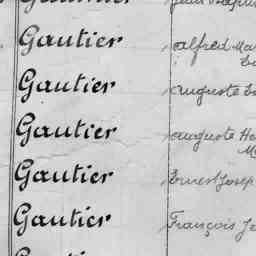 Gautier alfred
Gautier auguste
Gautier auguste
Gautier Ernest Josep
Gautier François